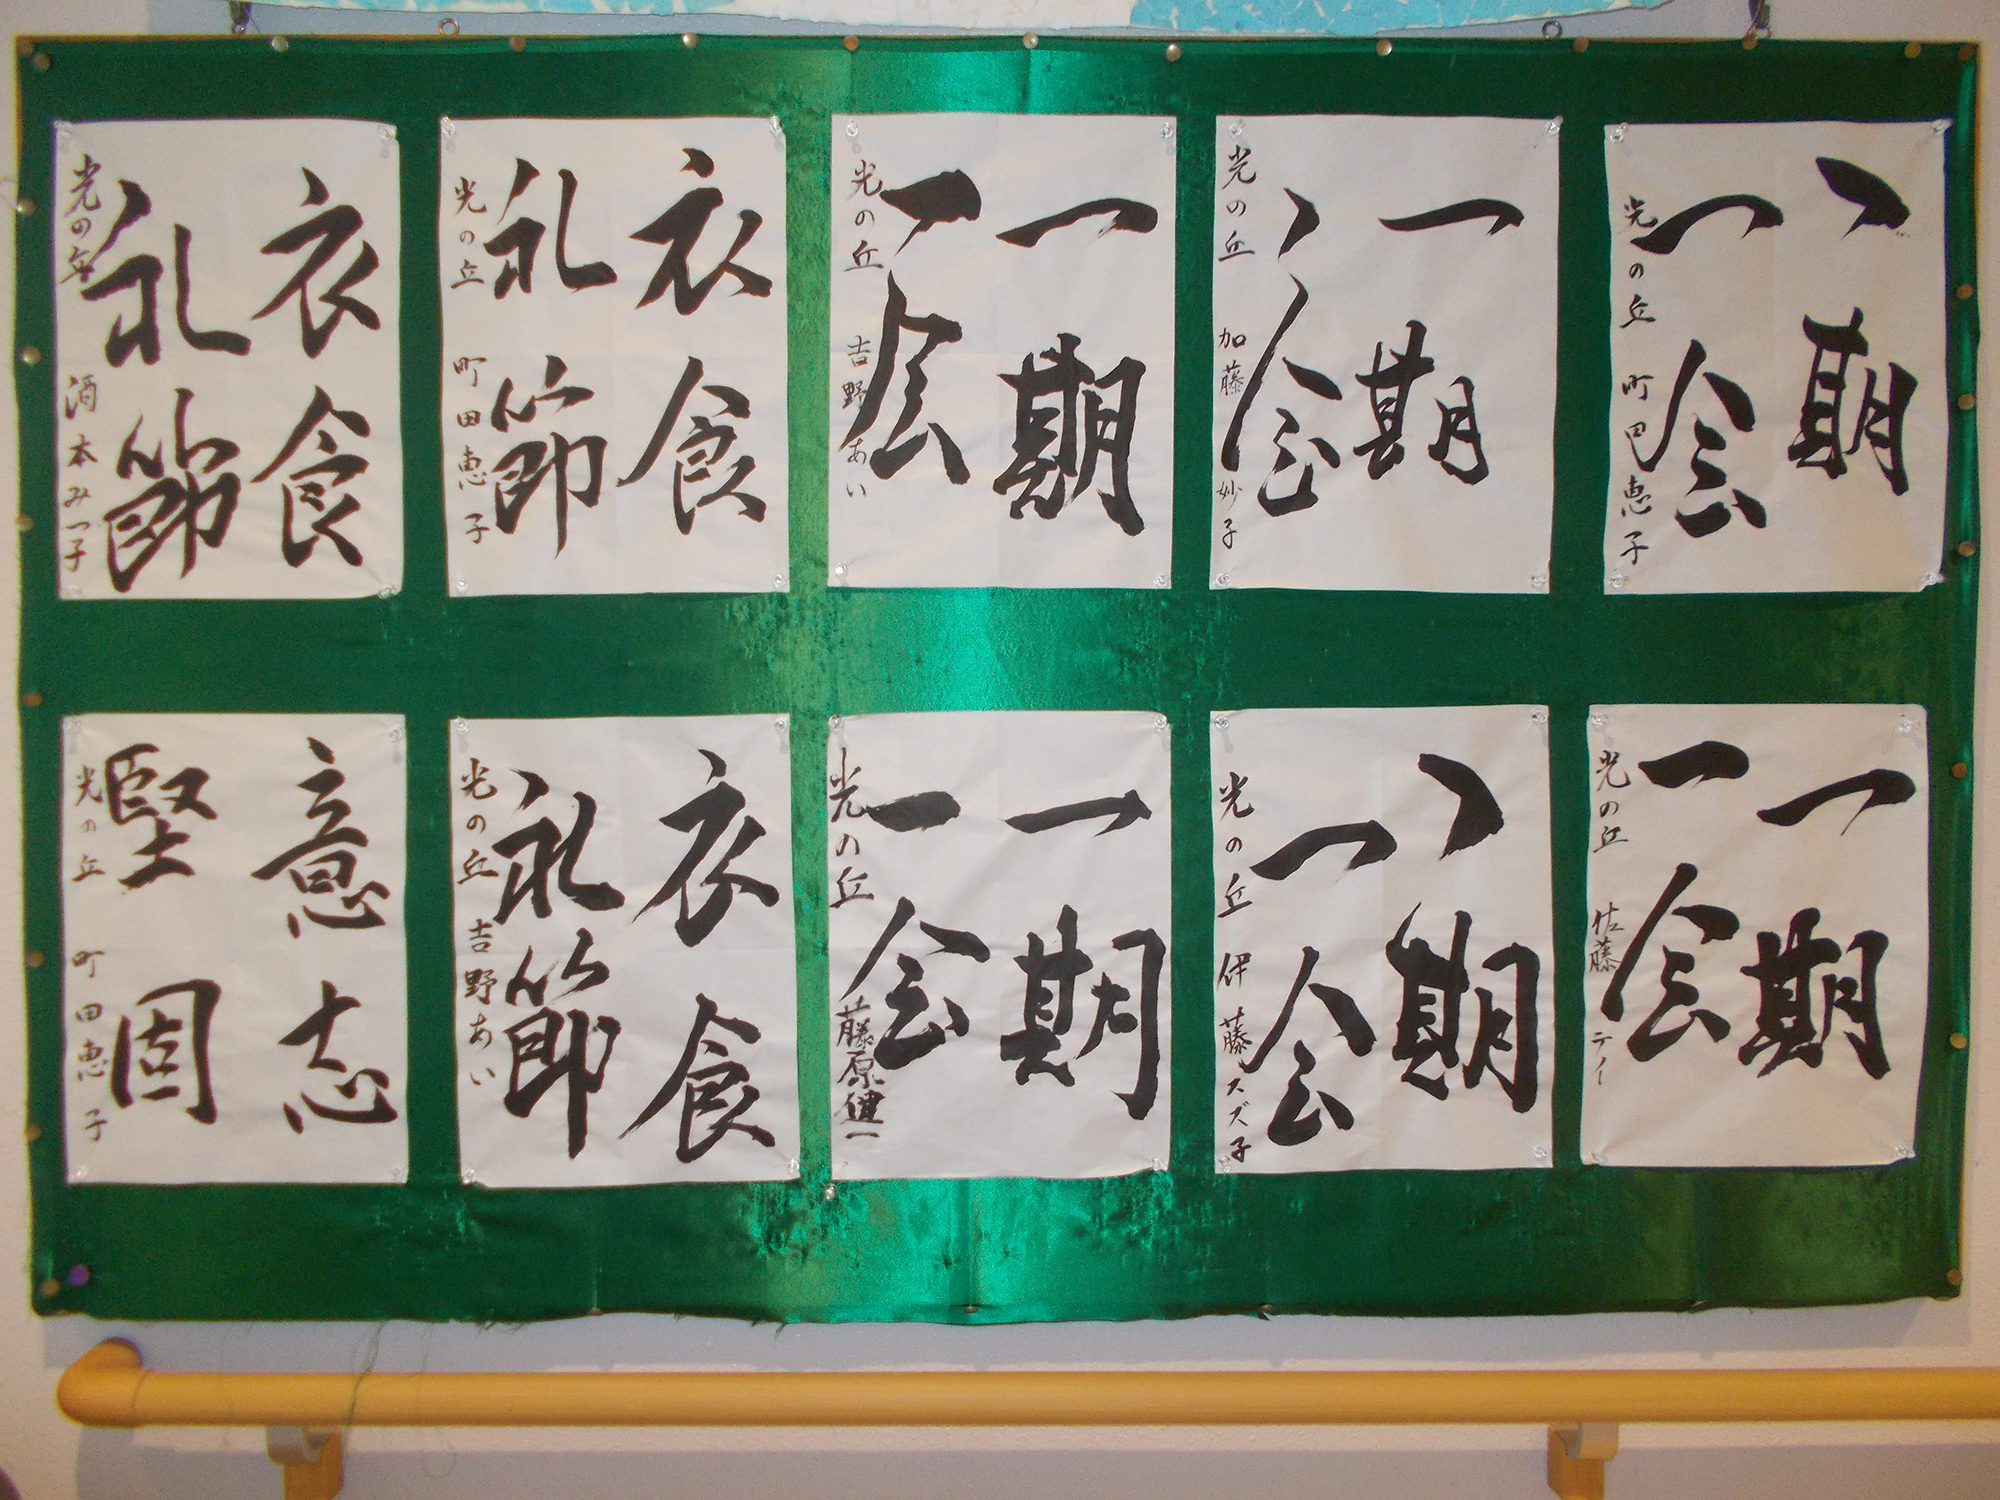 一期
一会
光の丘 町田恵子
一期
一会
光の丘 加藤妙子
一期
一会
光の丘 吉野あい
衣食
礼節
光の丘 町田恵子
衣食
礼節
光の丘 酒本みつ子
一期
一会
光の丘 佐藤テイ
一期
一会
光の丘 伊藤スズ子
一期
一会
光の丘 藤原健一
衣食
礼節
光の丘 吉野あい
意志
堅固
光の丘 町田恵子